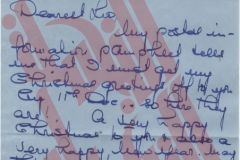 Dearest Luo
My postal in-
formation pamphlet tells
me that I must get my
Christmas greetings off to you
by 11th Dec - so here they
are! A very happy
Christmas to you & also a
very happy New Year, may